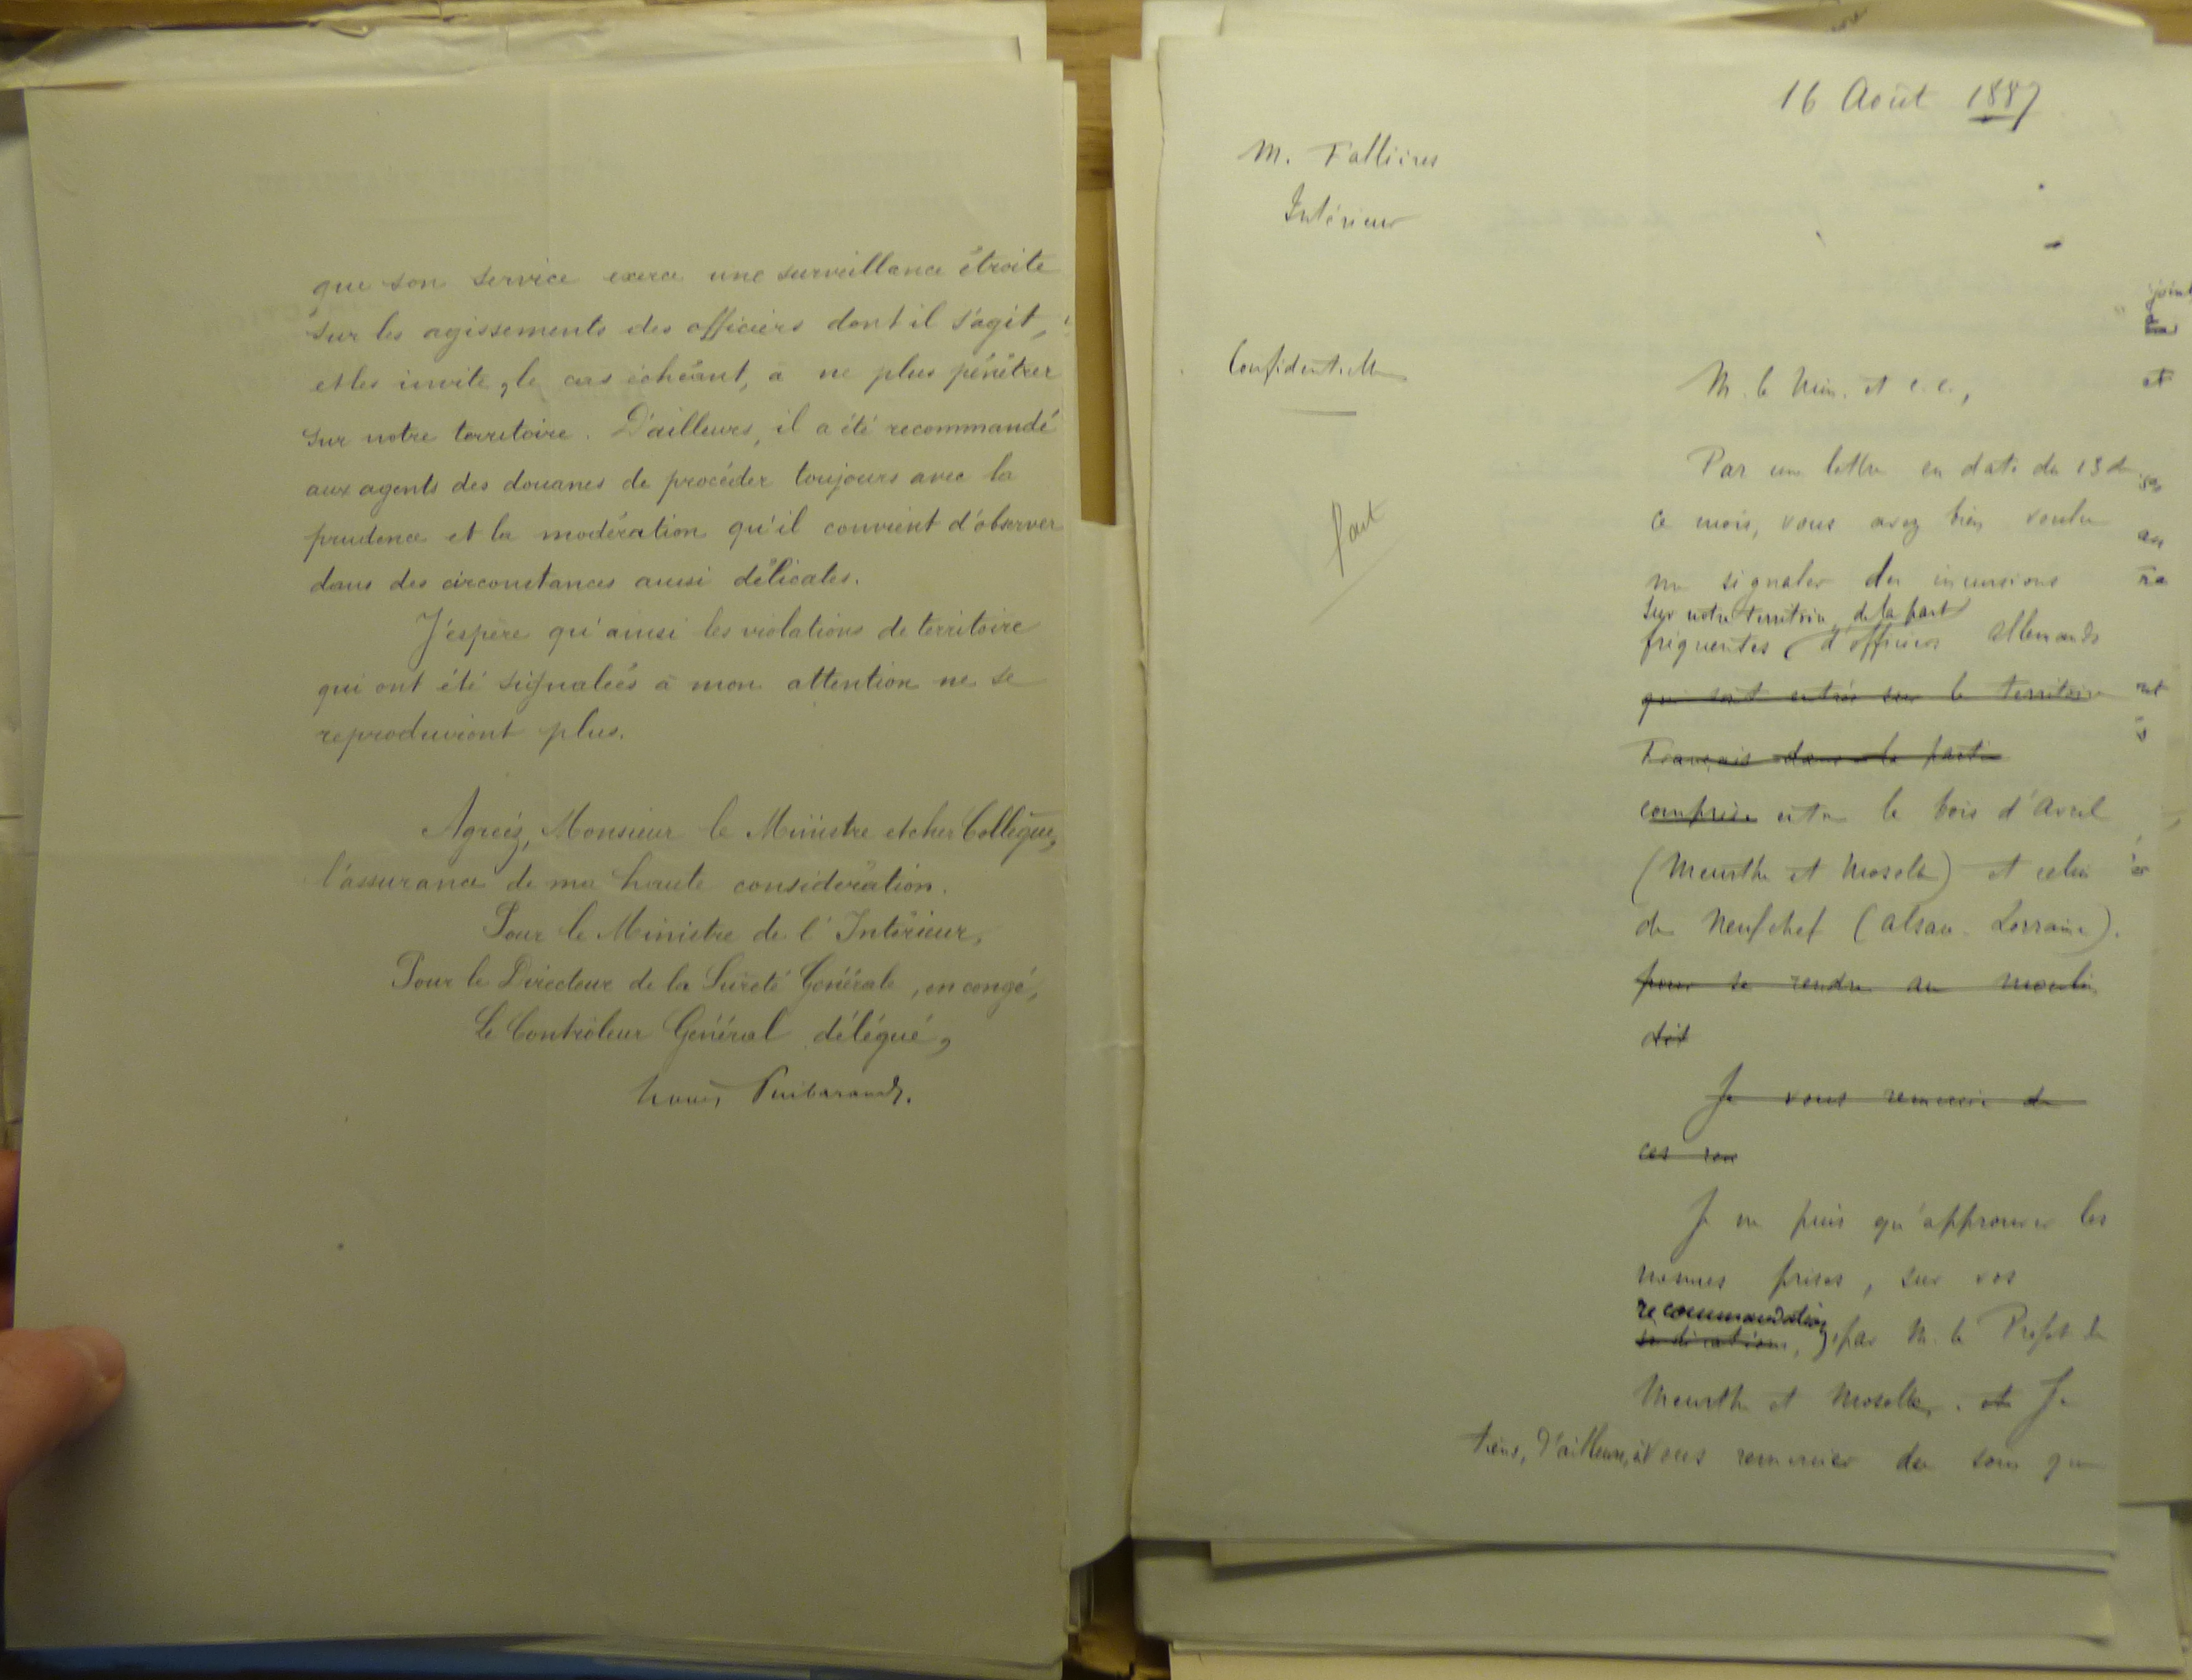 que son service exerce une surveillance étroite
sur les agissements des officiers dont il s'agit,
et les invite, le cas échéant, à ne plus pénétrer
sur notre territoire. D'ailleurs, il a été recommandé
aux agents des douanes de procéder toujours avec la
prudence et la modération qu'il convient d'observer
dans des circonstances aussi délicates.
J'espère qu'ainsi les violations de territoire
qui ont été signalées à mon attention ne se
reproduiront plus.
Agréez, Monsieur le Ministre et cher Collègue,
l'assurance de ma haute considération.
Pour le Ministre de l'Intérieur,
Pour le Directeur de la Sûreté Générale, en congé,
Le Contrôleur Général délégué,
Puibaraud.
16 Août 1887
M. Fallières
Intérieur
Confidentielle
fait
M. le Min. et c. c.,
Par une lettre en date du 13 de
ce mois, vous avez bien voulu
me signaler des incursions
sur notre territoire de la part
fréquentes d'officiers allemands
qui sont entrés sur le territoire
Français dans la partie
comprise entre le bois d'Avril
(Meurthe et Moselle) et celui
de Neufchef (Alsace-Lorraine).
pour se rendre au moulin
dit
Je vous remercie de
ces ren
Je ne puis qu'approuver les
mesures prises, sur vos
recommandations
indications, par M. le Préfet de
Meurthe et Moselle. et Je
tiens, d'ailleurs, à vous remercier du soin que